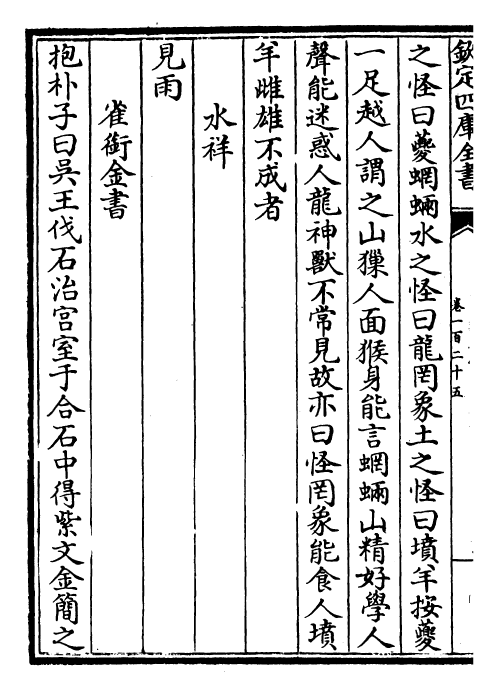 欽定四庫全書
卷一百二十五
之怪曰夔蝄蜽水之怪曰龍罔象土之怪曰墳羊按夔
一足越人謂之山獋人面猴身能言蝄蜽山精好學人
聲能迷惑人龍神獸不常見故亦曰怪罔象能食人墳
羊雌雄不成者
水祥
見雨
雀銜金書
抱朴子曰吳王伐石治宫室于合石中得紫文金簡之